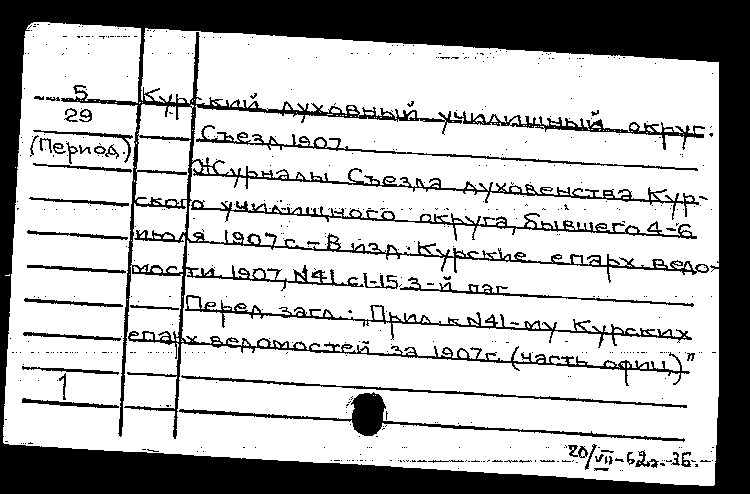 5
29
(Период.)
Курский духовный училищный округ.
Съезд, 1907.
Журналы Съезда духовенства Кур-
ского училищного округа, бывшего 4-6
июля 1907 г. - В изд.: Курские епарх. ведо-
мости 1907, N41 с.1-15 3-й паг.
Перед загл.: „Прил. к N41-му Курских
епарх. ведомостей за 1907г. (часть офиц.)”
1
20/VII-62г.